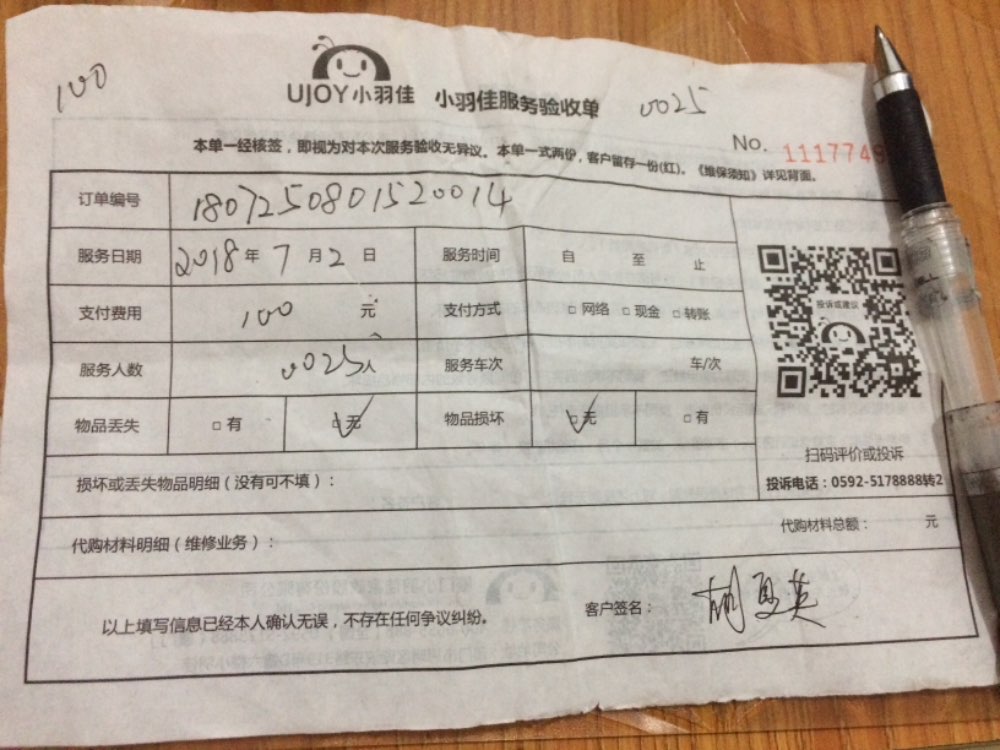 100
UJOY小羽佳 小羽佳服务验收单 0025
No. 1117749
本单一经核签，即视为对本次服务验收无异议。本单一式两份，客户留存一份(红)。《维保须知》详见背面。
订单编号 1807250801520014
服务日期 2018年7月2日 服务时间 自 至 止
支付费用 100 元 支付方式 □网络 □现金 □转账
投诉或建议
服务人数 0025人 服务车次 车/次
物品丢失 □有 □无 物品损坏 □无 □有
扫码评价或投诉
投诉电话：0592-5178888转2
损坏或丢失物品明细（没有可不填）：
代购材料明细（维修业务）： 代购材料总额： 元
以上填写信息已经本人确认无误，不存在任何争议纠纷。 客户签名：胡夏英